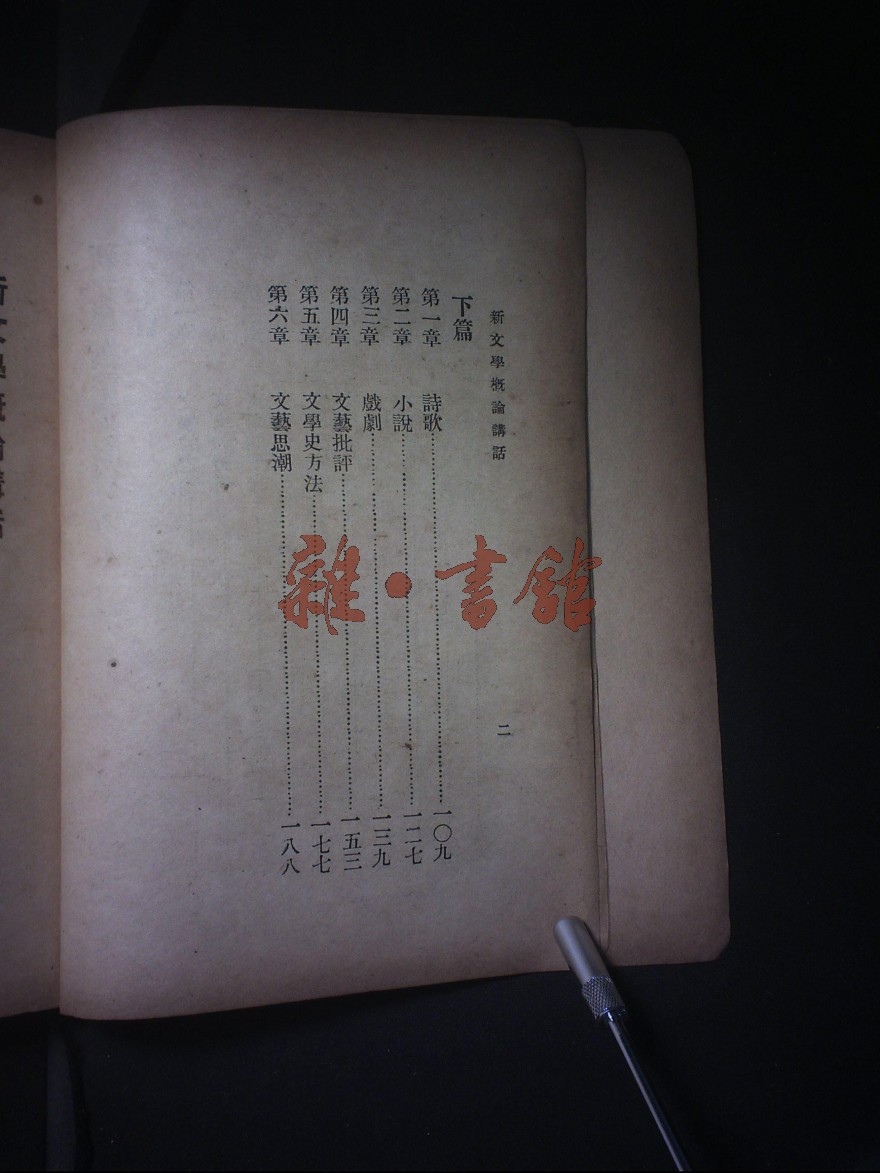 新文學概論講話
二
下篇
第一章 詩歌……一〇九
第二章 小說……一二七
第三章 戲劇……一三九
第四章 文藝批評……一五三
第五章 文學史方法……一七七
第六章 文藝思潮……一八八
雜·書館
新文學概論講話